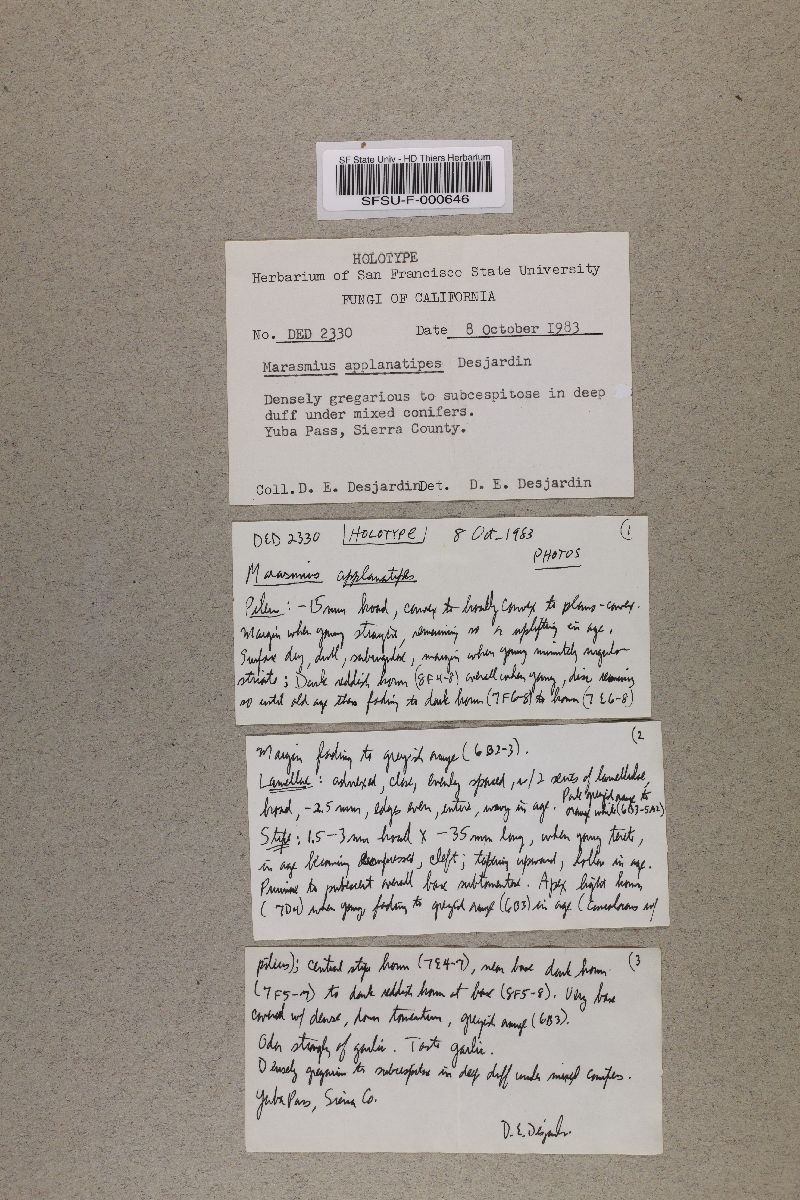 SF State Univ - HD Thiers Herbarium
SFSU-F-000646
HOLOTYPE
Herbarium of San Francisco State University
FUNGI OF CALIFORNIA
No. DED 2330 Date 8 October 1983
Marasmius applanatipes Desjardin
Densely gregarious to subcespitose in deep
duff under mixed conifers.
Yuba Pass, Sierra County.
Coll. D. E. Desjardin Det. D. E. Desjardin
DED 2330 HOLOTYPE 8 Oct. 1983 (1
PHOTOS
Marasmius applanatipes
Pileus: -15mm broad, convex to broadly convex to plano-convex.
Margin when young straight, remaining so or uplifting in age.
Surface dry, dull, subrugulose, margin when young minutely regular
striate; Dark reddish brown (8F4-8) overall when young, disc remaining
so until old age then fading to dark brown (7F6-8) to brown (7E6-8)
(2
Margin fading to greyish orange (6B2-3).
Lamellae: adnexed, close, evenly spaced, w/2 series of lamellulae,
broad, -2.5mm, edges even, entire, wavy in age. Pale greyish orange to
orange white (6B3-5A2)
Stipe: 1.5-3mm broad x -35mm long, when young terete,
in age becoming compressed, cleft; tapering upward, hollow in age.
Pruinose to pubescent overall base subtomentose. Apex light brown
(7D4) when young fading to greyish orange (6B3) in age (Concolorous w/
pileus); central stipe brown (7E4-7), near base dark brown (3
(7F5-7) to dark reddish brown at base (8F5-8). Very base
covered w/ dense, down tomentum, greyish orange (6B3).
Odor strongly of garlic. Taste garlic.
Densely gregarious to subcespitose in deep duff under mixed conifers.
Yuba Pass, Sierra Co.
D.E. Desjardin